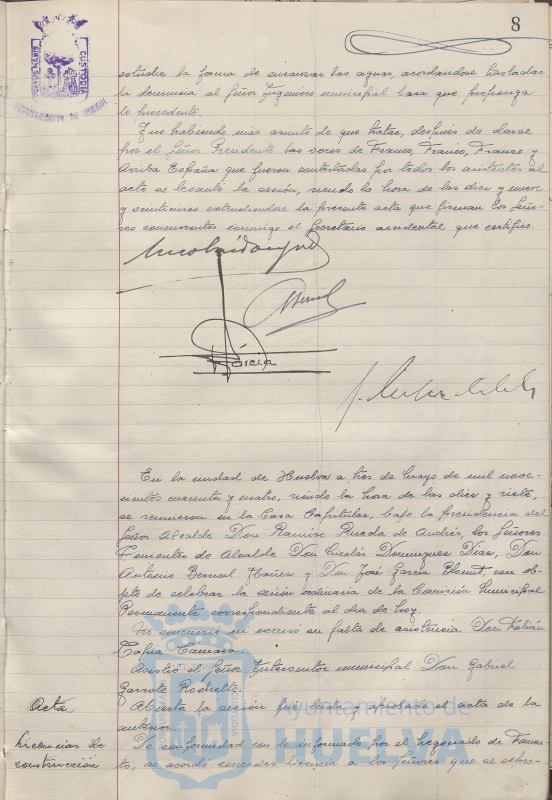 8
PORTUS MARIS
CUSTODIA
AYUNTAMIENTO DE HUELVA
estudie la forma de encauzar las aguas, acordandose trasladar
la denuncia al Señor Ingeniero municipal para que proponga
lo procedente.
Y no habiendo más asunto de que tratar, después de darse
por el Señor Presidente las voces de Franco, Franco, Franco y
Arriba España que fueron contestadas por todos los asistentes al
acto se levantó la sesión, siendo la hora de las diez y nueve
y veinticinco extendiéndose la presente acta que firman los Seño-
res concurrentes conmigo el Secretario accidental que certifico.
García
En la ciudad de Huelva a tres de Mayo de mil nove-
cientos cuarenta y cuatro, siendo la hora de las diez y siete,
se reunieron en la Casa Capitular, bajo la presidencia del
Señor Alcalde Don Ramiro Rueda de Andrés, los Señores
Tenientes de Alcalde Don Nicolás Dominguez Diaz, Don
Antonio Bernal Ibañez y Don José García con ob-
jeto de celebrar la sesión ordinaria de la Comisión Municipal
Permanente correspondiente al dia de hoy.
No concurrió ni excusó su falta de asistencia Don Fabián
Tapia
Asistió el Señor Interventor municipal Don Gabriel
Garrote
Acta
Abierta la sesión fué leida y aprobada el acta de la
anterior.
Licencias de
construcción
De conformidad con lo informado por el Negociado de Fomen-
to, se acordó conceder licencia a los Señores que se expre-
Ayuntamiento de
HUELVA